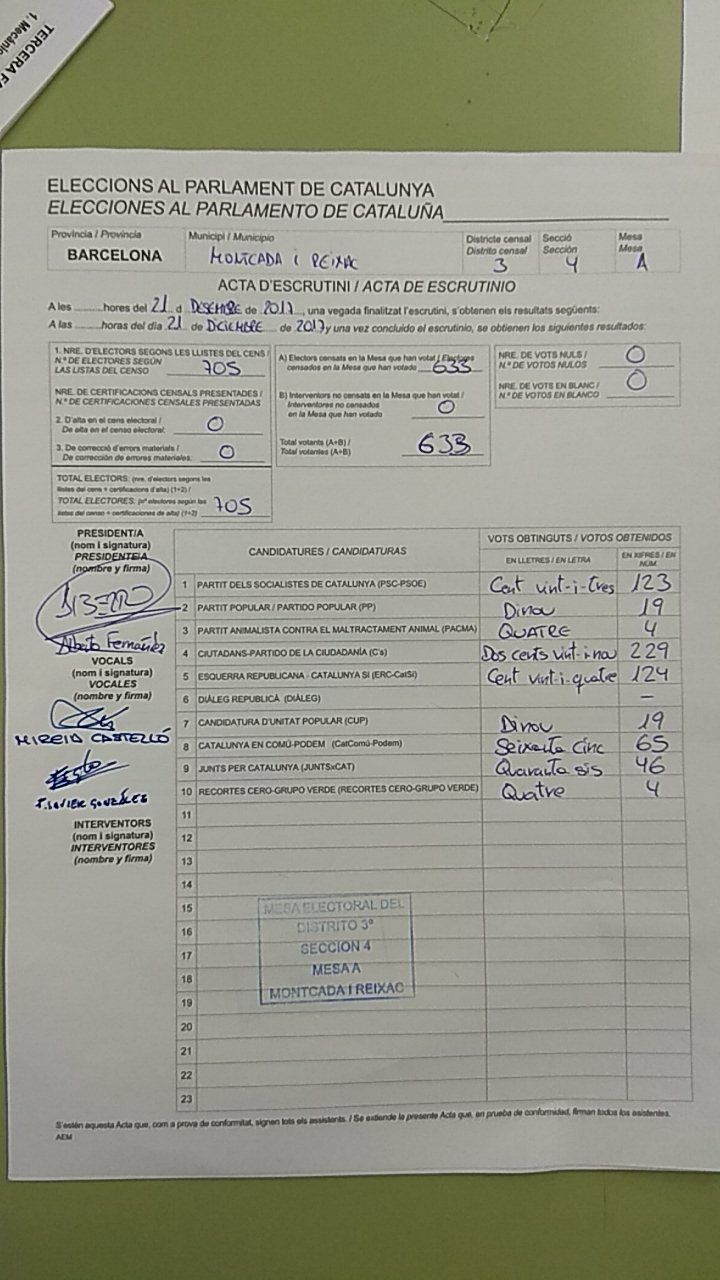 TERCERA FA
1. Mecànic
ELECCIONS AL PARLAMENT DE CATALUNYA
ELECCIONES AL PARLAMENTO DE CATALUÑA
Provincia / Provincia
BARCELONA
Municipi / Municipio
MONTCADA I REIXAC
Districte censal
Distrito censal
3
Secció
Sección
4
Mesa
Mesa
A
ACTA D'ESCRUTINI / ACTA DE ESCRUTINIO
A les ..........hores del 21 d DESEMBRE de 2017, una vegada finalitzat l'escrutini, s'obtenen els resultats següents:
A las ..........horas del día 21 de DICIEMBRE de 2017 y una vez concluido el escrutinio, se obtienen los siguientes resultados:
1. NRE. D'ELECTORS SEGONS LES LLISTES DEL CENS /
N.º DE ELECTORES SEGÚN
LAS LISTAS DEL CENSO 705
NRE. DE CERTIFICACIONS CENSALS PRESENTADES /
N.º DE CERTIFICACIONES CENSALES PRESENTADAS
2. D'alta en el cens electoral /
De alta en el censo electoral: 0
3. De correcció d'errors materials /
De corrección de errores materiales: 0
TOTAL ELECTORS: (nre. d'electors segons les
llistes del cens + certificacions d'alta) (1+2) /
TOTAL ELECTORES: (nº electores según las
listas del censo + certificaciones de alta) (1+2) 705
A) Electors censats en la Mesa que han votat / Electores
censados en la Mesa que han votado 633
B) Interventors no censats en la Mesa que han votat /
Interventores no censados
en la Mesa que han votado 0
Total votants (A+B) /
Total votantes (A+B) 633
NRE. DE VOTS NULS /
N.º DE VOTOS NULOS 0
NRE. DE VOTS EN BLANC /
N.º DE VOTOS EN BLANCO 0
PRESIDENT/A
(nom i signatura)
PRESIDENTE/A
(nombre y firma)
Alberto Fernández
VOCALS
(nom i signatura)
VOCALES
(nombre y firma)
MIREIA CASTELLÓ
F. JAVIER GONZÁLEZ
INTERVENTORS
(nom i signatura)
INTERVENTORES
(nombre y firma)
CANDIDATURES / CANDIDATURAS
VOTS OBTINGUTS / VOTOS OBTENIDOS
EN LLETRES / EN LETRA
EN XIFRES / EN NÚM.
1 PARTIT DELS SOCIALISTES DE CATALUNYA (PSC-PSOE) Cent vint-i-tres 123
2 PARTIT POPULAR / PARTIDO POPULAR (PP) Dinou 19
3 PARTIT ANIMALISTA CONTRA EL MALTRACTAMENT ANIMAL (PACMA) QUATRE 4
4 CIUTADANS-PARTIDO DE LA CIUDADANÍA (C's) Dos cents vint-i-nou 229
5 ESQUERRA REPUBLICANA - CATALUNYA SI (ERC-CatSí) Cent vint-i-quatre 124
6 DIÀLEG REPUBLICÀ (DIÀLEG) –
7 CANDIDATURA D'UNITAT POPULAR (CUP) Dinou 19
8 CATALUNYA EN COMÚ-PODEM (CatComú-Podem) Seixanta cinc 65
9 JUNTS PER CATALUNYA (JUNTSxCAT) Quaranta sis 46
10 RECORTES CERO-GRUPO VERDE (RECORTES CERO-GRUPO VERDE) Quatre 4
11
12
13
14
15
16
17
18
19
20
21
22
23
MESA ELECTORAL DEL
DISTRITO 3º
SECCION 4
MESA A
MONTCADA I REIXAC
S'estén aquesta Acta que, com a prova de conformitat, signen tots els assistents. / Se extiende la presente Acta que, en prueba de conformidad, firman todos los asistentes.
AEM